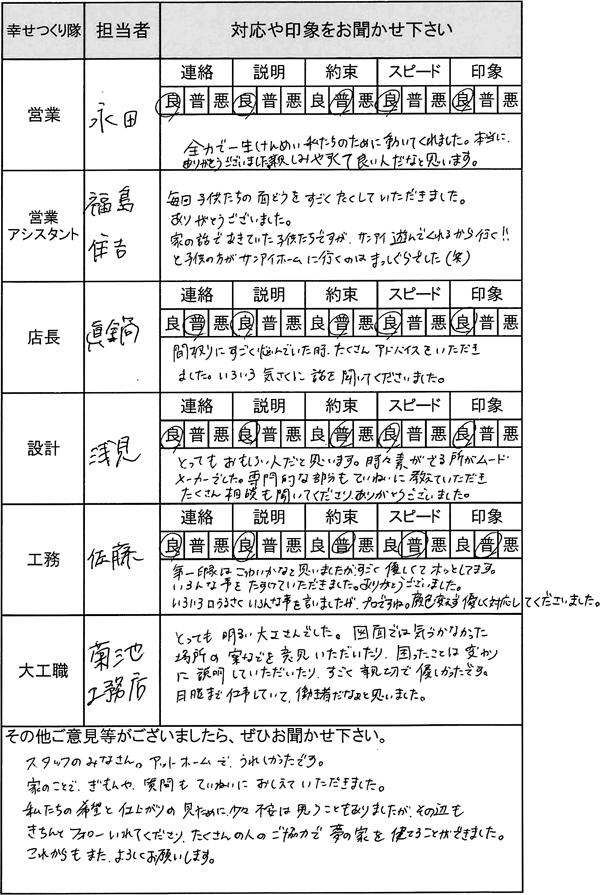 幸せつくり隊 担当者 対応や印象をお聞かせ下さい
営業 永田
連絡 説明 約束 スピード 印象
良 普 悪 良 普 悪 良 普 悪 良 普 悪 良 普 悪
全力で一生けんめい私たちのために動いてくれました。本当に
ありがとうございました。親しみやすくて良い人だなと思います。
営業アシスタント 福島 住吉
毎回子供たちの面どうをすごくたくしていただきました。
ありがとうございました。
家の話であきていた子供たちですが、サンアイ遊んでくれるから行く!!
と子供の方がサンアイホームに行くのはまっしぐらでした(笑)
店長 真鍋
連絡 説明 約束 スピード 印象
良 普 悪 良 普 悪 良 普 悪 良 普 悪 良 普 悪
間取りにすごく悩んでいた時、たくさんアドバイスをいただき
ました。いろいろ気さくに話を聞いてくださいました。
設計 浅見
連絡 説明 約束 スピード 印象
良 普 悪 良 普 悪 良 普 悪 良 普 悪 良 普 悪
とってもおもしろい人だと思います。時々素がでる所がムード
メーカーでした。専門的な部分もていねいに教えていただき
たくさん相談も聞いてくださりありがとうございました。
工務 佐藤
連絡 説明 約束 スピード 印象
良 普 悪 良 普 悪 良 普 悪 良 普 悪 良 普 悪
第一印象はこわいかなと思いましたがすごく優しくてホッとしてます。
いろんな事をたすけていただきました。ありがとうございました。
いろいろ口うるさくいろんな事を言いましたが、プロですね。顔色変えず優しく対応してくださいました。
大工職 菊池工務店
とっても明るい大工さんでした。図面では気づかなかった
場所の案などを意見いただいたり、困ったことは変わり
に説明していただいたり、すごく親切で優しかったです。
日曜まで仕事していて、働き者だなぁと思いました。
その他ご意見等がございましたら、ぜひお聞かせ下さい。
スタッフのみなさん。アットホームで、うれしかったです。
家のことで、ぎもんや、質問もていねいにおしえていただきました。
私たちの希望と仕上がりの見ために少々不安は思うこともありましたが、その辺も
きちんとフォローいれてくださり、たくさんの人のご協力で夢の家を建てることができました。
これからもまた、よろしくお願いします。